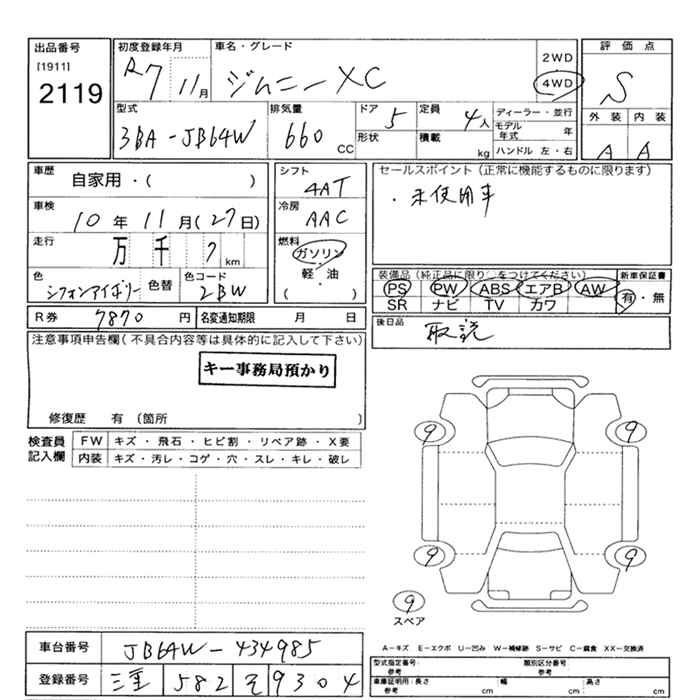 出品番号
[1911]
2119
初度登録年月
R7 11月
車名・グレード
ジムニー XC
2WD
4WD
評価点
S
外装 内装
A A
型式
3BA-JB64W
排気量
660 CC
ドア 5
形状
定員 4人
積載 kg
ディーラー・並行
モデル年式 年
ハンドル 左・右
車歴
自家用・( )
車検
10年11月(27日)
走行
万 千 7 km
色
シフォンアイボリー 色替
色コード
2BW
シフト
4AT
冷房
AAC
燃料
ガソリン
軽・油
( )
セールスポイント(正常に機能するものに限ります)
・未使用車
装備品(純正品に限り○をつけてください)
PS PW ABS エアB AW
SR ナビ TV カワ
新車保証書
有・無
R券 7870円
名変通知期限 月 日
後日品
取説
注意事項申告欄(不具合内容等は具体的に記入して下さい)
キー事務局預かり
修復歴 有(箇所 )
検査員記入欄
FW キズ・飛石・ヒビ割・リペア跡・X要
内装 キズ・汚レ・コゲ・穴・スレ・キレ・破レ
9 9
9 9
9
スペア
車台番号 JB64W-434985
登録番号 三重 582 そ 9304
A-キズ E-エクボ U-凹み W-補修跡 S-サビ C-腐食 XX-交換済
型式指定番号 参考
類別区分番号 参考
車庫証明用 参考 長さ cm 幅 cm 高さ cm